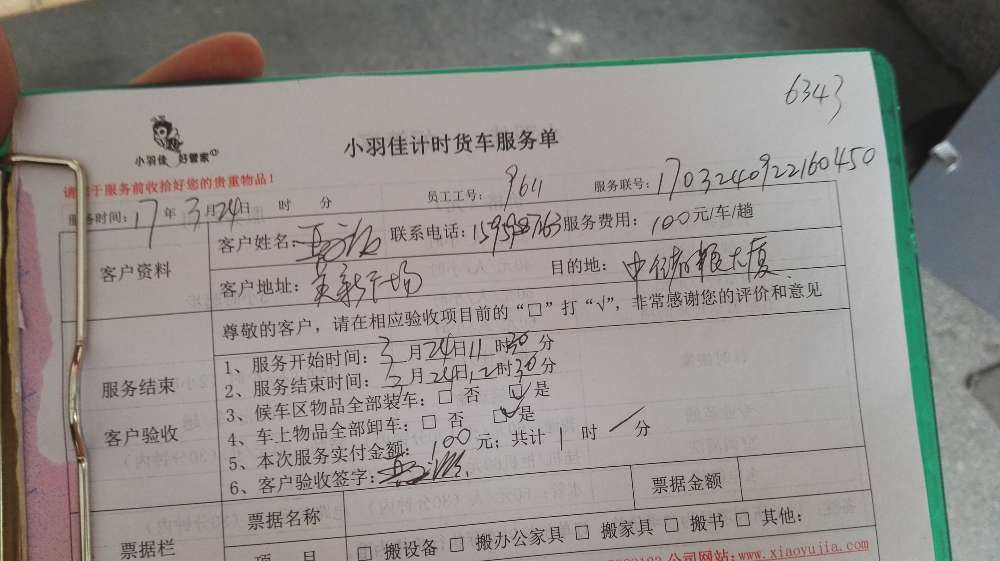 6343
小羽佳 好管家
小羽佳计时货车服务单
请于服务前收拾好您的贵重物品！
服务时间：17年3月24日 时 分 员工工号：9611 服务联号：1703240922160450
客户资料
客户姓名： 联系电话： 服务费用：100元/车/趟
客户地址： 目的地：中储粮大厦
尊敬的客户，请在相应验收项目前的“□”打“√”，非常感谢您的评价和意见
服务结束
客户验收
1、服务开始时间：3月24日11时30分
2、服务结束时间：3月24日12时30分
3、候车区物品全部装车：□ 否 ☑是
4、车上物品全部卸车：□ 否 ☑是
5、本次服务实付金额：100元；共计1时/分
6、客户验收签字：
票据栏
票据名称 票据金额
项 目 □ 搬设备 □ 搬办公家具 □ 搬家具 □ 搬书 □ 其他：
公司网站：www.xiaoyujia.com